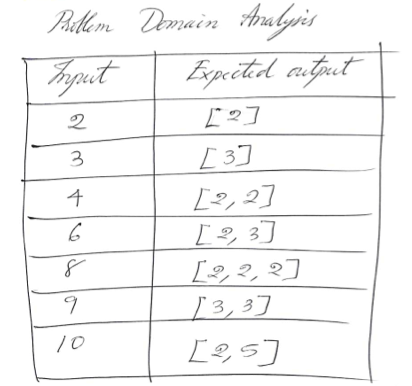 Problem Domain Analysis
Input Expected output
2 [2]
3 [3]
4 [2, 2]
6 [2, 3]
8 [2, 2, 2]
9 [3, 3]
10 [2, 5]